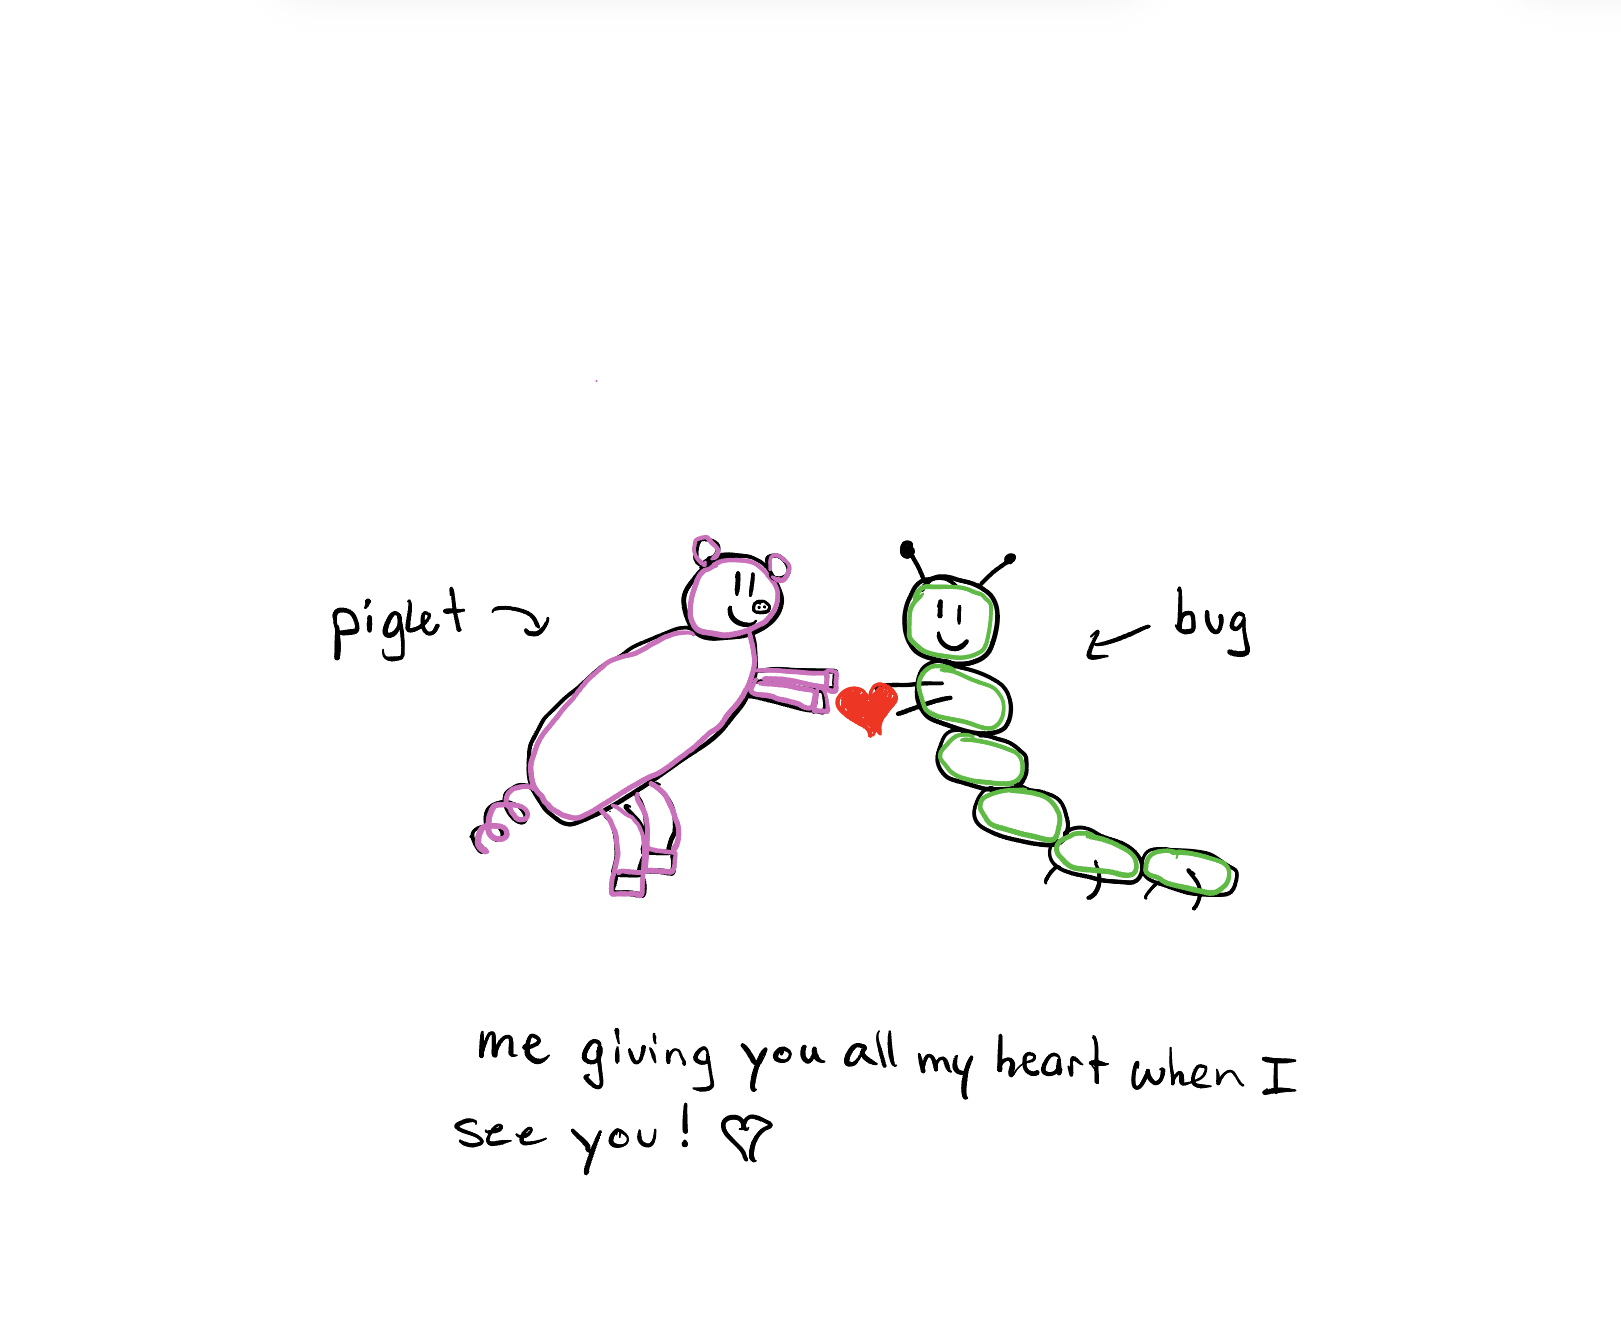 piglet
bug
me giving you all my heart when I
see you!